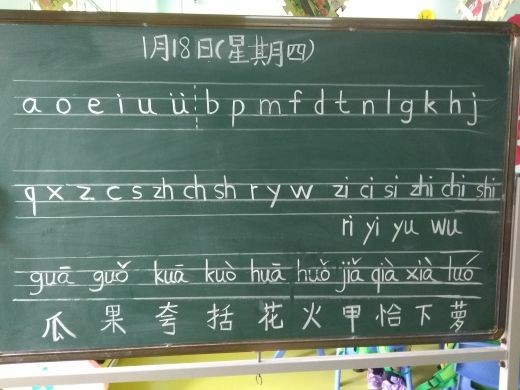 1月18日(星期四)
a o e i u ü b p m f d t n l g k h j
q x z c s zh ch sh r y w zi ci si zhi chi shi
ri yi yu wu
guā guǒ kuā kuò huā huǒ jiǎ qià xià luó
瓜 果 夸 括 花 火 甲 恰 下 萝